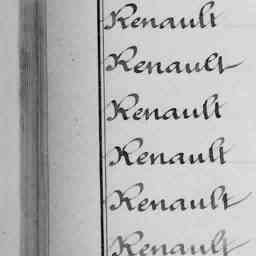 Renault
Renault
Renault
Renault
Renault
Renault